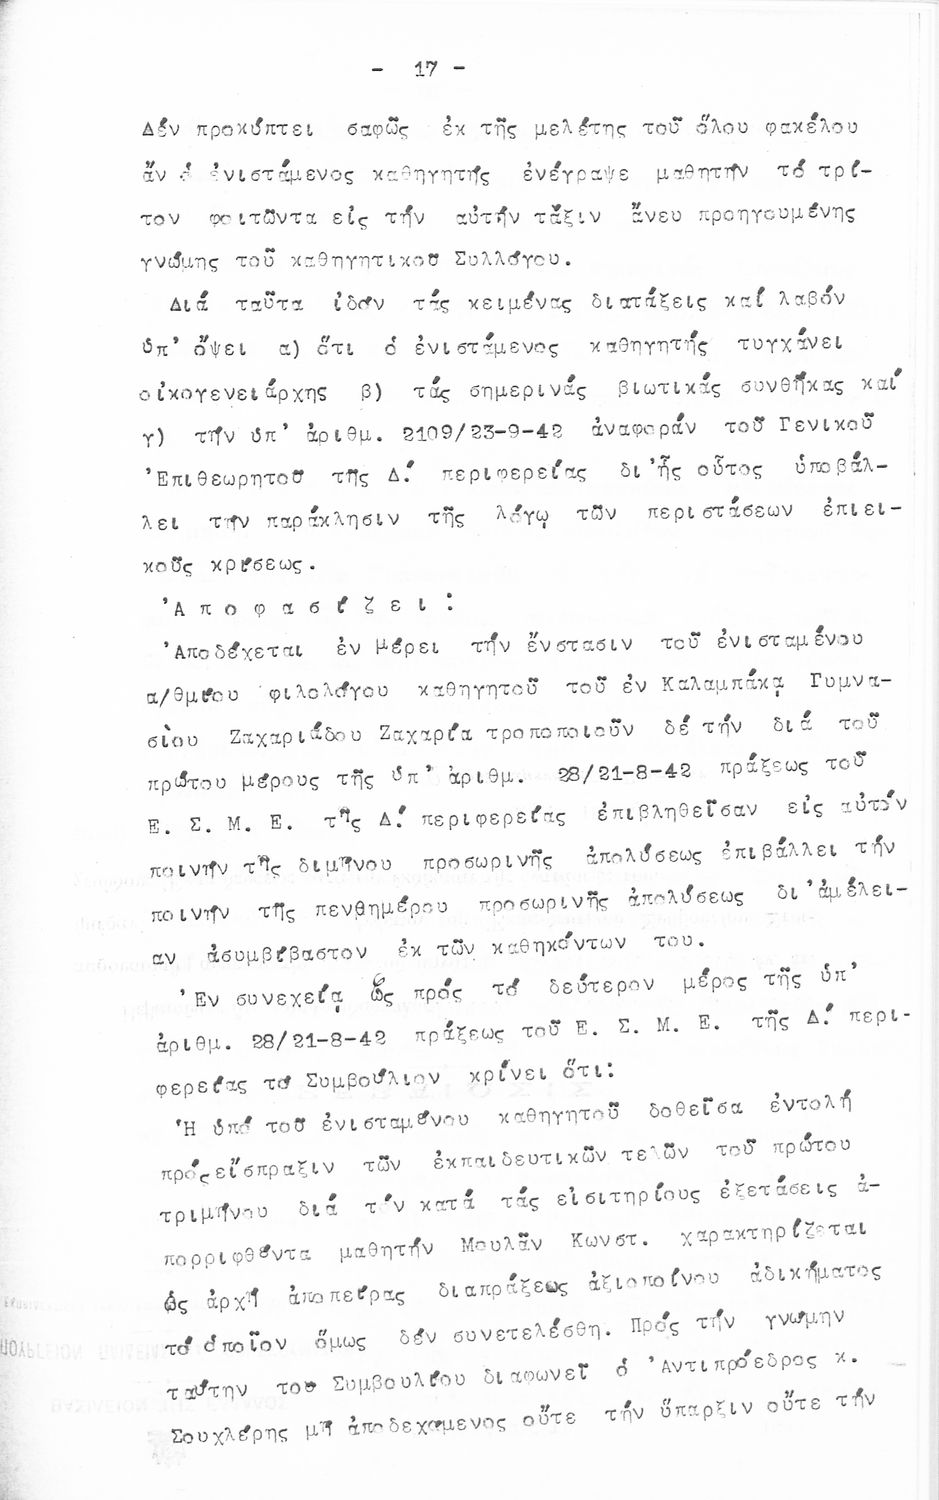 - 17 -
Δέν προκύπτει σαφῶς ἐκ τῆς μελέτης τοῦ ὅλου φακέλου
ἄν ὁ ἐνιστάμενος καθηγητής ἐνέγραψε μαθητήν τό τρί-
τον φοιτῶντα εἰς τήν αὐτήν τάξιν ἄνευ προηγουμένης
γνώμης τοῦ καθηγητικοῦ Συλλόγου.
Διά ταῦτα ἰδόν τάς κειμένας διατάξεις καί λαβόν
ὑπ' ὄψει α) ὅτι ὁ ἐνιστάμενος καθηγητής τυγχάνει
οἰκογενειάρχης β) τάς σημερινάς βιωτικάς συνθήκας καί
γ) τήν ὑπ' ἀριθμ. 2109/23-9-42 ἀναφοράν τοῦ Γενικοῦ
'Επιθεωρητοῦ τῆς Δ.' περιφερείας δι'ἧς οὗτος ὑποβάλ-
λει τήν παράκλησιν τῆς λόγῳ τῶν περιστάσεων ἐπιει-
κοῦς κρίσεως.
'Α π ο φ α σ ί ζ ε ι :
'Αποδέχεται ἐν μέρει τήν ἔνστασιν τοῦ ἐνισταμένου
α/θμίου φιλολόγου καθηγητοῦ τοῦ ἐν Καλαμπάκᾳ Γυμνα-
σίου Ζαχαριάδου Ζαχαρία τροποποιοῦν δέ τήν διά τοῦ
πρώτου μέρους τῆς ὑπ' ἀριθμ. 28/21-8-42 πράξεως τοῦ
Ε. Σ. Μ. Ε. τῆς Δ.' περιφερείας ἐπιβληθεῖσαν εἰς αὐτόν
ποινήν τῆς διμήνου προσωρινῆς ἀπολύσεως ἐπιβάλλει τήν
ποινήν τῆς πενθημέρου προσωρινῆς ἀπολύσεως δι'ἀμέλει-
αν ἀσυμβίβαστον ἐκ τῶν καθηκόντων του.
'Εν συνεχείᾳ ὡς πρός τό δεύτερον μέρος τῆς ὑπ'
ἀριθμ. 28/21-8-42 πράξεως τοῦ Ε. Σ. Μ. Ε. τῆς Δ.' περι-
φερείας τό Συμβούλιον κρίνει ὅτι:
'Η ὑπό τοῦ ἐνισταμένου καθηγητοῦ δοθεῖσα ἐντολή
πρός εἴσπραξιν τῶν ἐκπαιδευτικῶν τελῶν τοῦ πρώτου
τριμήνου διά τόν κατά τάς εἰσιτηρίους ἐξετάσεις ἀ-
πορριφθέντα μαθητήν Μουλᾶν Κωνστ. χαρακτηρίζεται
ὡς ἀρχή ἀποπείρας διαπράξεως ἀξιοποίνου ἀδικήματος
τό ὁποῖον ὅμως δέν συνετελέσθη. Πρός τήν γνώμην
ταύτην τοῦ Συμβουλίου διαφωνεῖ ὁ 'Αντιπρόεδρος κ.
Σουχλέρης μή ἀποδεχόμενος οὔτε τήν ὕπαρξιν οὔτε τήν